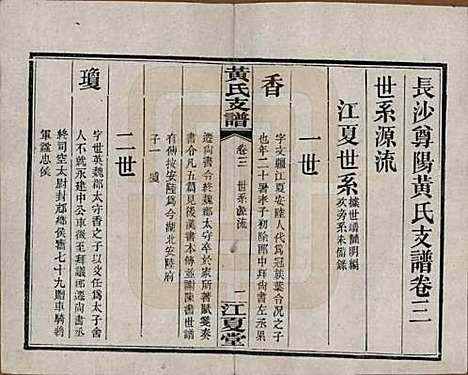 長沙尊陽黃氏支譜卷三
世系源流
江夏世系
據世璜簡明編
攷旁系未備錄
一世
香
字文彊江夏安陸人代爲冠族黨合況之子
也年二十署孝子初仕郎中拜尚書左丞累
黃氏支譜
卷三
世系源流
一
江夏堂
遷尚書令終魏郡太守卒於家所著賦箋奏
書令凡五篇見後漢書本傳並謝陳書世譜
有傳按安陸爲今湖北安陸府
子一 瓊
二世
瓊
字世英魏郡太守香之子以父任爲太子舍
人不就永建中公車徵至拜議郎遷尚書令
終司空太尉封邟鄉侯壽七十九贈車騎將
軍諡忠侯